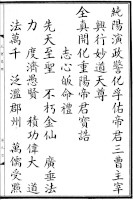 純陽演政警化孚佑帝君三曹主宰
興行妙道天尊
全真闡化重陽帝君寶誥
志心皈命禮
先天至聖 不朽金仙 廣垂法
力 度濟愚賢 積功偉大 道
法萬千 泛濫 州 萬儒受